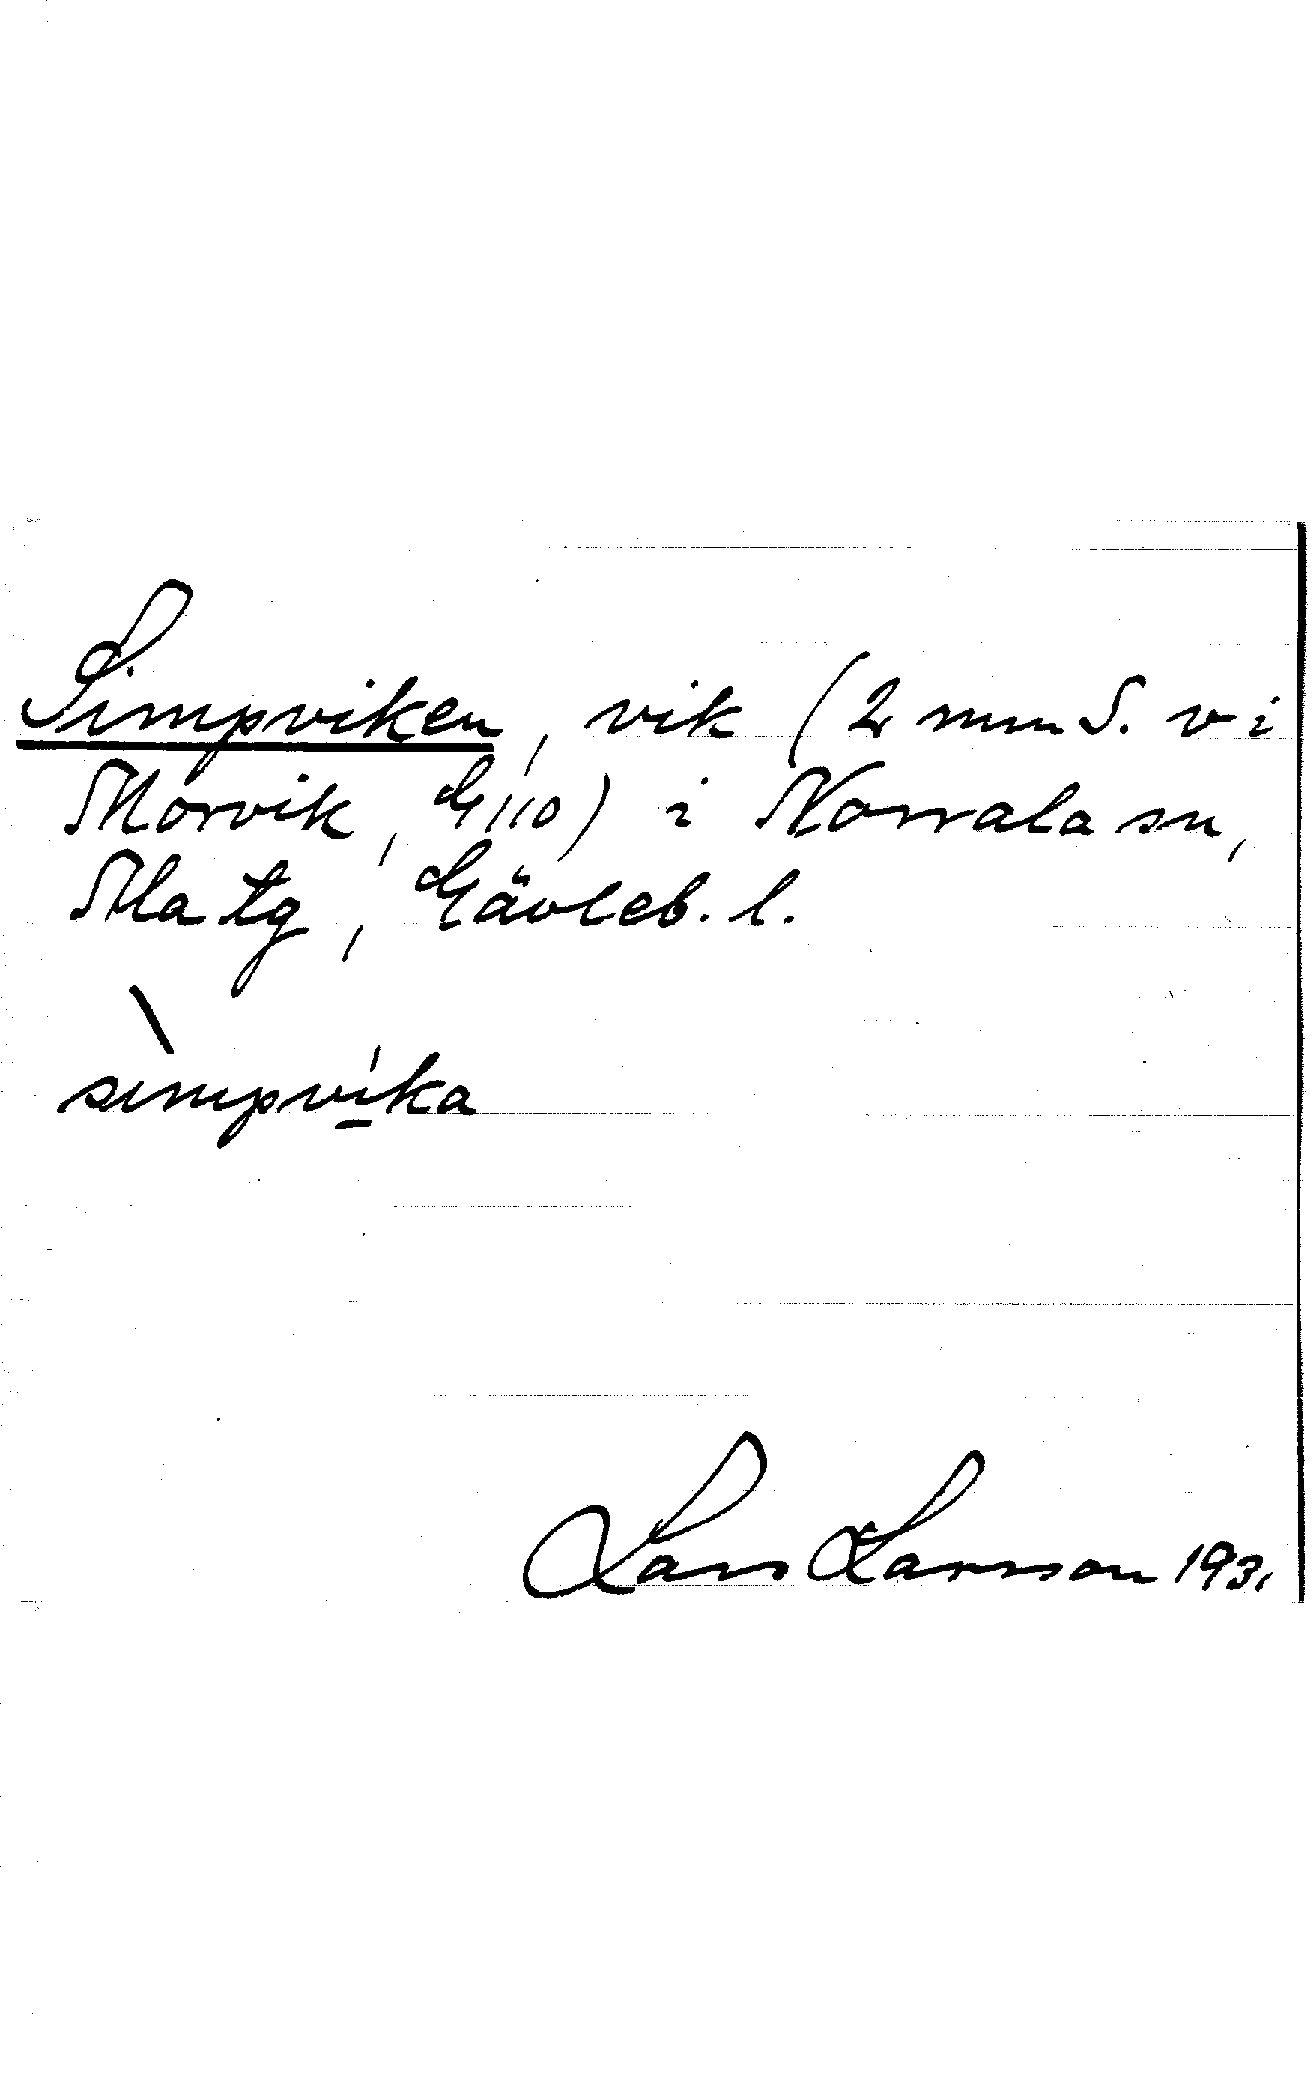 Simpviken, vik (2 mm S. v i
Morvik, G 110) i Norrala sn,
Ala tg, Gävleb. l.
simpvika
Lars Larsson 1931